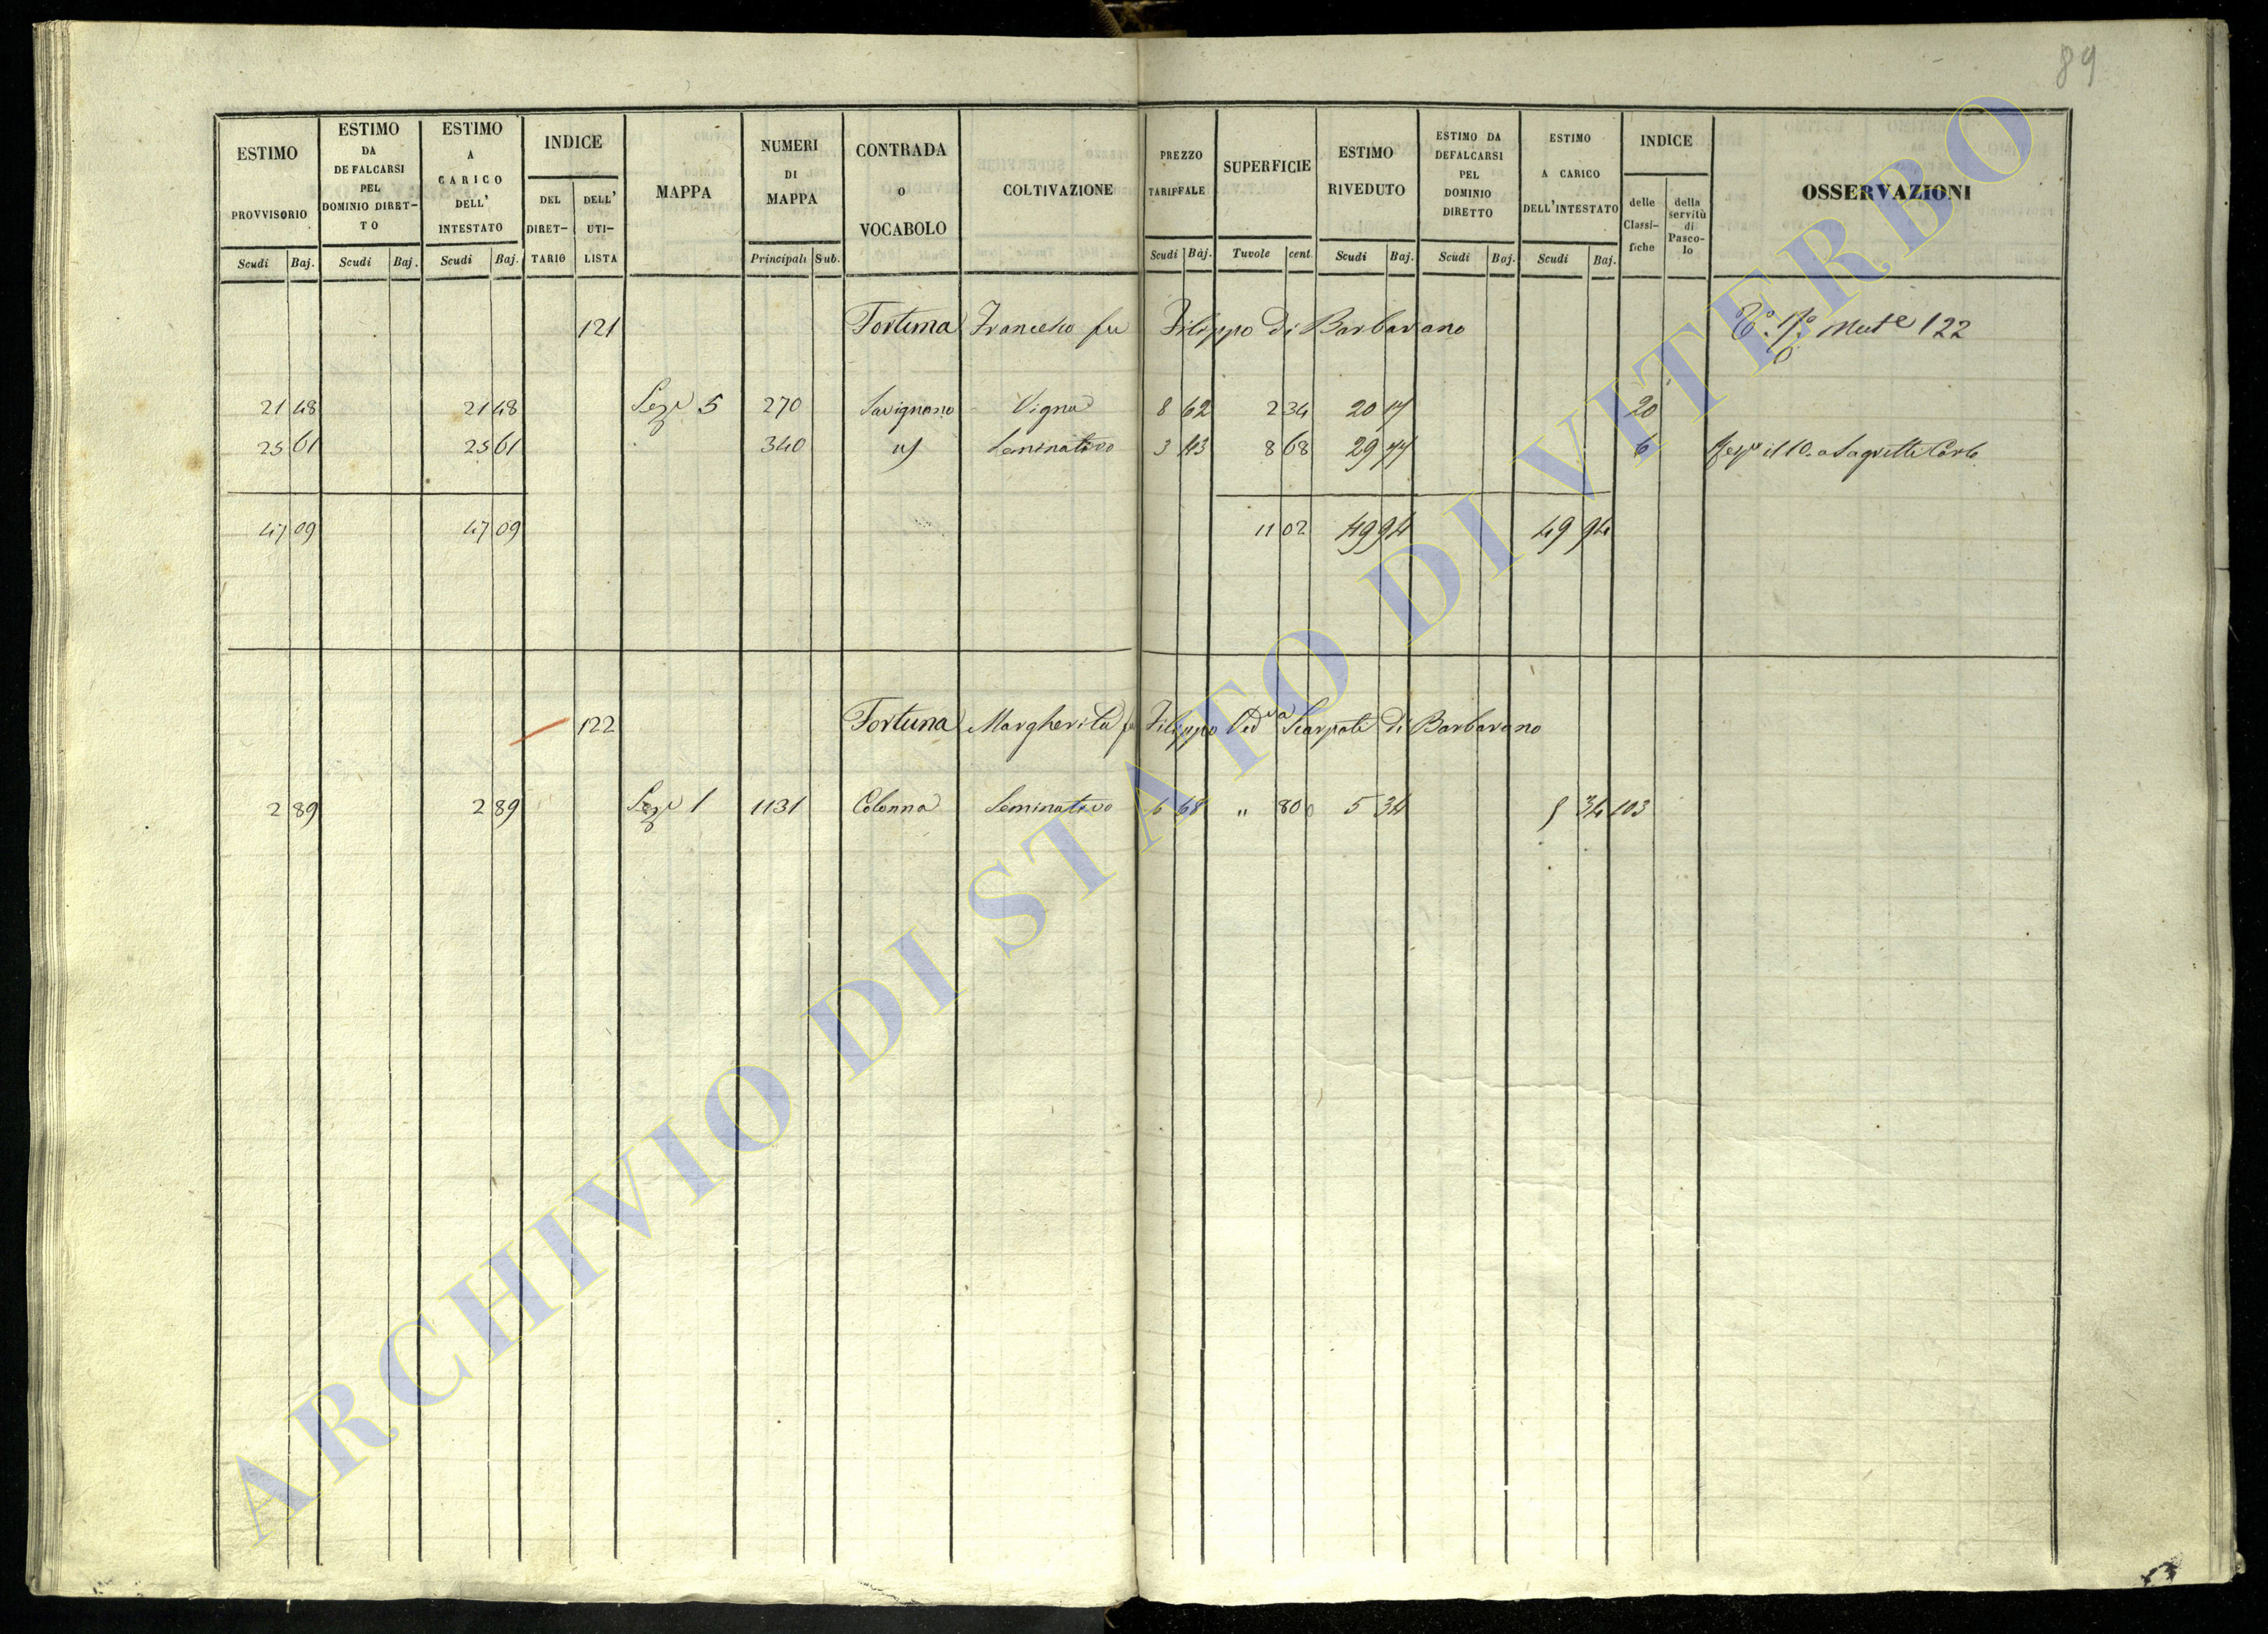 89
ESTIMO PROVVISORIO
ESTIMO DA DEFALCARSI PEL DOMINIO DIRET-TO
ESTIMO A CARICO DELL' INTESTATO
INDICE
DEL DIRET-TARIO
DELL' UTI-LISTA
MAPPA
NUMERI DI MAPPA
CONTRADA O VOCABOLO
COLTIVAZIONE
PREZZO TARIFFALE
SUPERFICIE
ESTIMO RIVEDUTO
ESTIMO DA DEFALCARSI PEL DOMINIO DIRETTO
ESTIMO A CARICO DELL'INTESTATO
INDICE
delle Classi-fiche
della servitù di Pasco-lo
OSSERVAZIONI
Scudi Baj. Scudi Baj. Scudi Baj. Principali Sub. Scudi Baj. Tavole cent. Scudi Baj. Scudi Baj. Scudi Baj.
121 Fortuna Francesco fu Filippo di Barbarano 122
21 48 21 48 Sez.e 5 270 Savignano Vigna 8 62 2 34 20 17 20
25 61 25 61 340 Seminativo 3 43 8 68 29 77 6
47 09 47 09 11 02 49 94 49 94
122 Fortuna Margherita fu Filippo Ved.va Scarpati di Barbarano
2 89 2 89 Sez.e 1 1131 Colonna Seminativo 6 68 " 80 5 34 5 34 103
ARCHIVIO DI STATO DI VITERBO